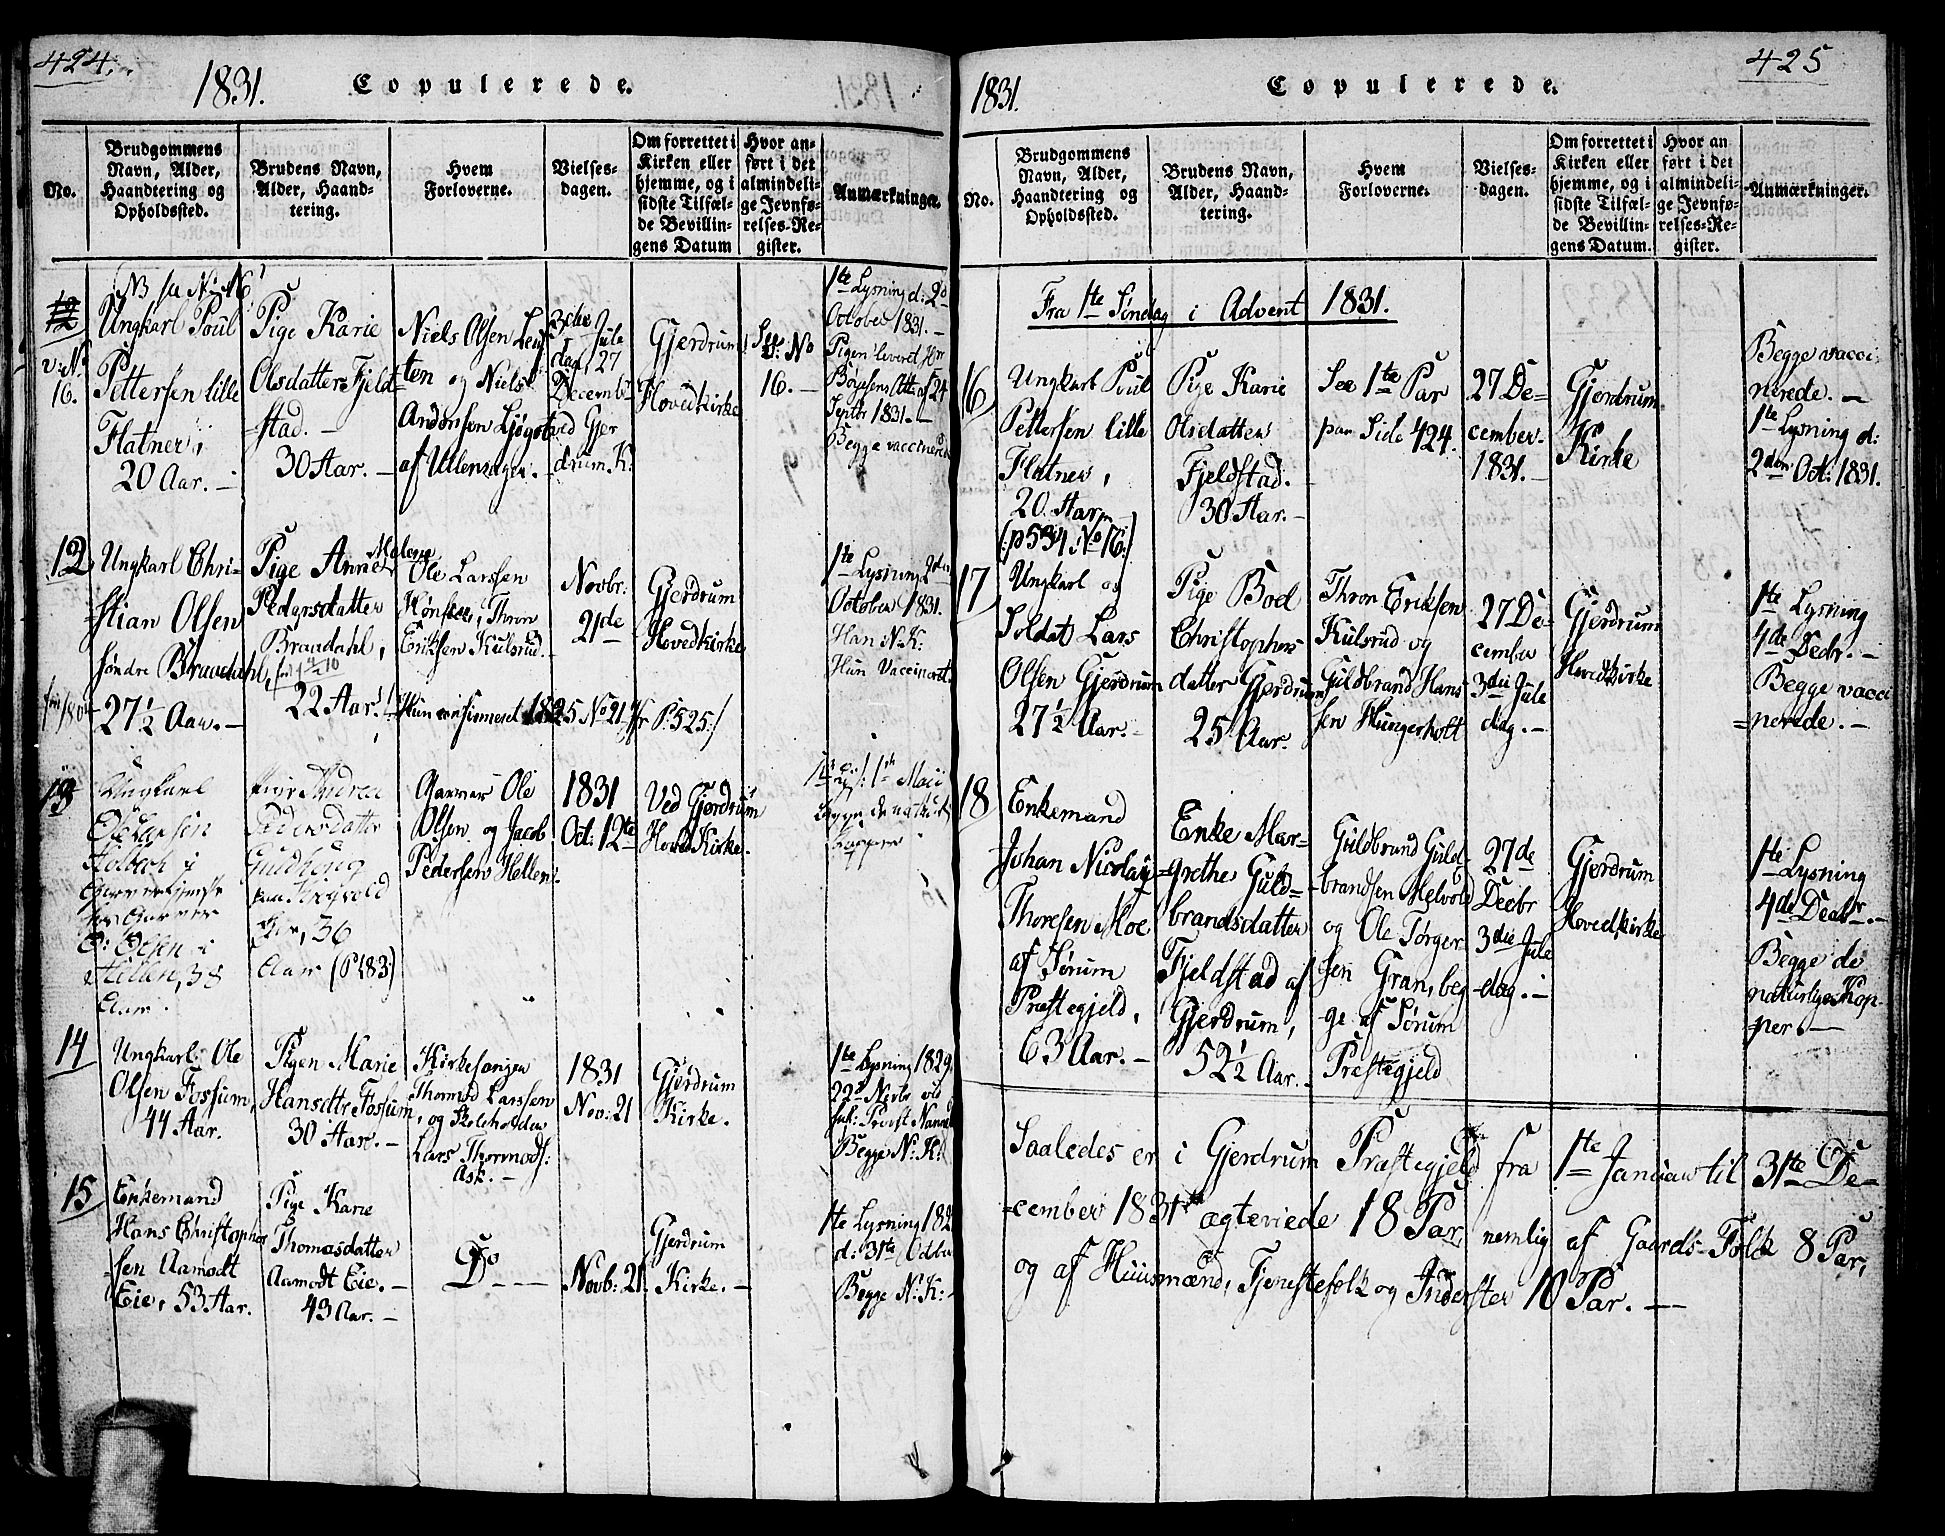 424.
1831. Copulerede.
No.
Brudgommens
Navn, Alder,
Haandtering og
Opholdssted.
Brudens Navn,
Alder, Haand-
tering.
Hvem
Forloverne.
Vielses-
dagen.
Om forrettet i
Kirken eller
hjemme, og i
sidste Tilfæl-
de Bevillin-
gens Datum
Hvor an-
ført i det
almindeli-
ge Jevnfø-
relses-Re-
gister.
Anmærkninger.
12
v: N:
16.
Ungkarl Poul
Pettersen lille
Flatner,
20 Aar. –
Pige Karie
Olsdatter Fjeld-
stad. –
30 Aar. –
Niels Olsen
ten og Niels
Andersen Ljøgot
af Ullensager. –
3die Jule
dag, 27
Decembr
ved Gjer
drum K:
Gjerdrum
Hovedkirke
See No
16. –
1te Lysning d: 2d
October 1831. –
Pigen leveret
Attest af 24
Septbr 1831. –
Begge vaccinerede
12
Ungkarl Chri-
stian Olsen
søndre Braadahl,
27½ Aar. –
Pige Anne Malene
Pedersdatter
Braadahl,
22 Aar.
Ole Larssen
Mønsees, Thron
Eriksen Kulsrud. –
Hun confirmeret 1825 No 21 P. 525:/
Novbr:
21de
Gjerdrum
Hovedkirke
1te Lysning 2den
October 1831.
Han N. K:
Hun Vaccineret
13
Ungkarl
Ole Larsen
Holbech i
Garver
O: Olsen i
Hellen, 38
Aar.
Pige Andrea
Pedersdatter
36
Aar (P. 483)
Garver Ole
Olsen og Jacob
Pedersen Hellen. –
1831
Oct: 12te
Ved Gjerdrum
Hoved Kirke.
1te Maii
Begge de naturl:
kopper
14
Ungkarl Ole
Olsen Fossum,
44 Aar.
Pigen Marie
Hansdtr Fossum,
30 Aar. –
Kirkesanger
Thormod Larssen
og Skoleholder
Lars Thormods:
Ask. –
1831
Nov: 21
Gjerdrum
Kirke.
1te Lysning 1829.
22d Novbr ved
Provst
Begge N: K:
15
Enkemand
Hans Christopher
sen Aamodt
Eie, 53 Aar.
Pige Karie
Thomasdatter
Aamodt Eie. –
43 Aar. –
Do – –
Novb: 21.
Gjerdrum
Kirke. –
1te Lysning 182
d: 31te Octbr
Begge N: K: –
425
1831. Copulerede.
No.
Brudgommens
Navn, Alder,
Haandtering og
Opholdssted.
Brudens Navn,
Alder, Haand-
tering.
Hvem
Forloverne.
Vielses-
dagen.
Om forrettet i
Kirken eller
hjemme, og i
sidste Tilfæl-
de Bevillin-
gens Datum.
Hvor an
ført i det
almindeli-
ge Jevnfø-
relses-Re-
gister.
Anmærkninger.
Fra 1te Søndag i Advent 1831.
16
Ungkarl Poul
Pettersen lille
Flatner,
20 Aar –
(:p 534 No 16:)
Pige Karie
Olsdatter
Fjeldstad.
30 Aar. –
See 1te Par
paa Side 424.
27 De-
cember
1831. –
Gjerdrum
Kirke
Begge vacci
nerede. –
1te Lysning d:
2den Oct: 1831.
17
Ungkarl og
Soldat Lars
Olsen Gjerdrum
27½ Aar. –
Pige Bod
Christophers
datter Gjerdrum
25 Aar.
Thron Eriksen
Kulsrud og
Guldbrand Hans
sen Hungerholt
27 De-
cember
3die Jule
dag. –
Gjerdrum
Hovedkirke
1te Lysning
4de Decbr. –
Begge vacci
nerede. –
18
Enkemand
Johan Nicolay
Thoresen Moe
af Sørum
Præstegjeld,
63 Aar. –
Enke Mar-
grethe Guld-
brandsdatter
Fjeldstad af
Gjerdrum,
52½ Aar. –
Guldbrand Guld-
brandsen Melvold
og Ole Torger
sen Gran, beg-
ge af Sørum
Præstegjeld
27de
Decbr
3die Jule
dag. –
Gjerdrum
Hovedkirke
1te Lysning
4de Decbr. –
Begge de
naturlige Kop-
per. –
Saaledes er i Gjerdrum Præstegjeld fra 1te Januar til 31te De-
cember 1831 ægteviede 18 Par, nemlig af Gaards-Folk 8 Par,
og af Huusmænd, Tjenestefolk og Inderster 10 Par. –